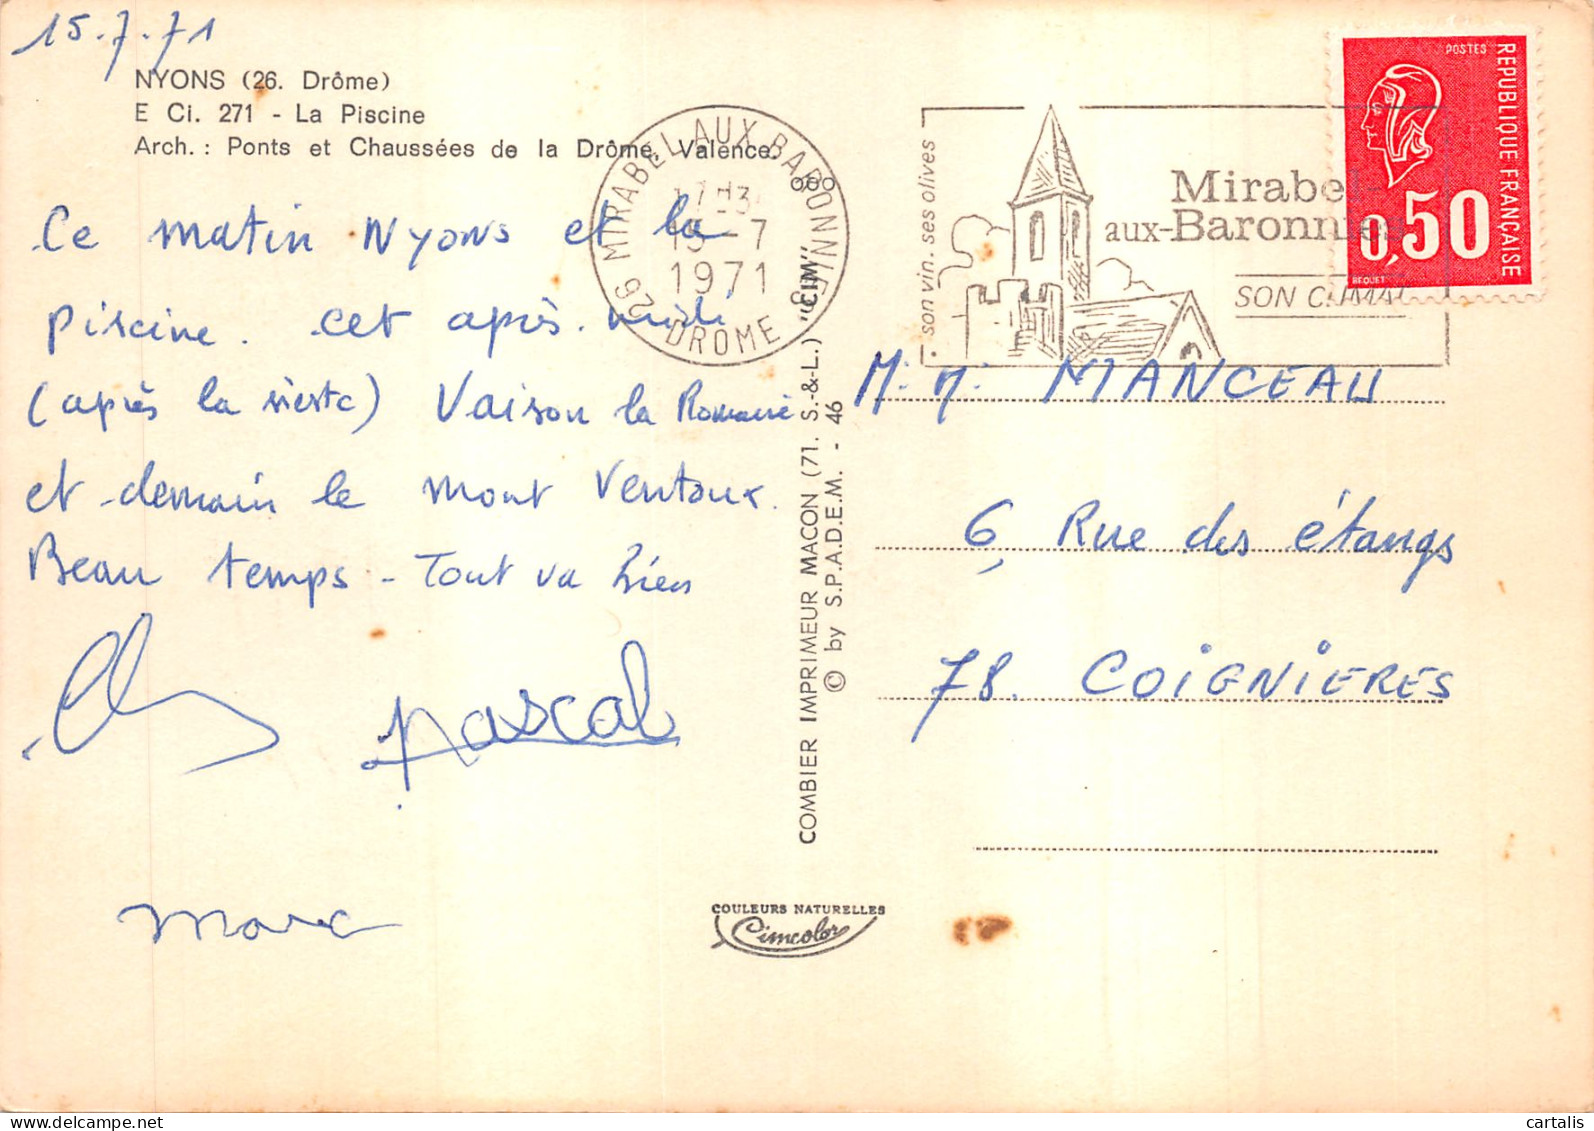 15.7.71
NYONS (26. Drôme)
E Ci. 271 - La Piscine
Arch. : Ponts et Chaussées de la Drôme, Valence.
Ce matin Nyons et la
piscine. cet après-midi
(après la sieste) Vaison la Romaine
et demain le mont Ventoux.
Beau temps - Tout va bien
Pascal
Marc
26 MIRABEL AUX BARONNIES
15 -7
1971
DROME
COMBIER IMPRIMEUR MACON (71. S.-&-L.) "CIM"
© by S.P.A.D.E.M. - 46
COULEURS NATURELLES
Cimcolor
son vin. ses olives
Mirabel-
aux-Baronnies
SON CLIMAT
POSTES
REPUBLIQUE FRANÇAISE
0,50
BEQUET
M. M. MANCEAU
6, Rue des étangs
78. COIGNIERES
cartalis
www.delcampe.net